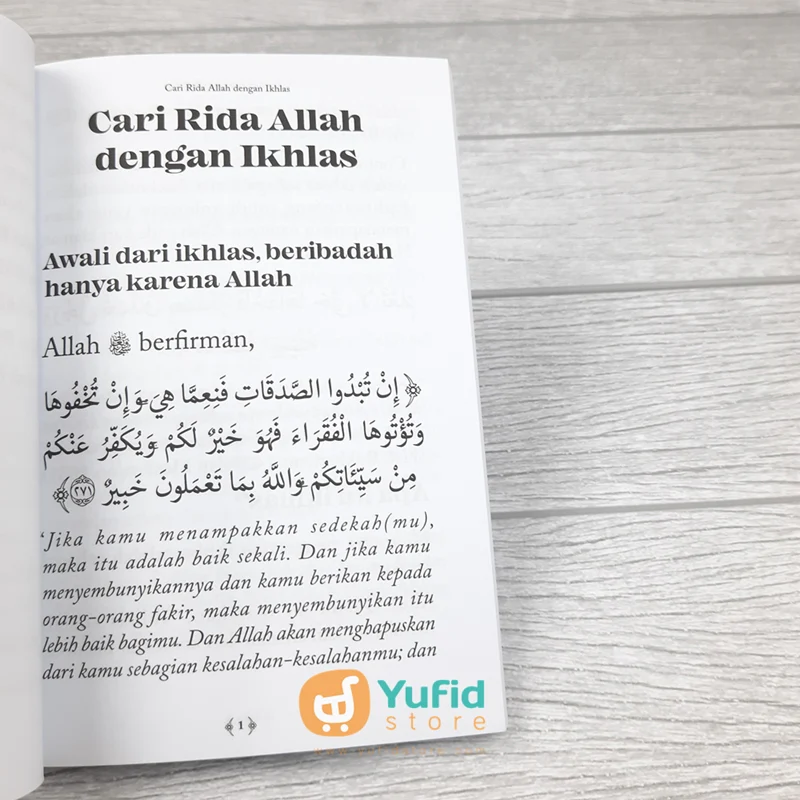 Cari Rida Allah dengan Ikhlas
Cari Rida Allah
dengan Ikhlas
Awali dari ikhlas, beribadah
hanya karena Allah
Allah ﷻ berfirman,
﴿إِنْ تُبْدُوا الصَّدَقَاتِ فَنِعِمَّا هِيَ وَإِنْ تُخْفُوهَا
وَتُؤْتُوهَا الْفُقَرَاءَ فَهُوَ خَيْرٌ لَكُمْ وَيُكَفِّرُ عَنْكُمْ
مِنْ سَيِّئَاتِكُمْ وَاللَّهُ بِمَا تَعْمَلُونَ خَبِيرٌ ٢٧١﴾
‘Jika kamu menampakkan sedekah(mu),
maka itu adalah baik sekali. Dan jika kamu
menyembunyikannya dan kamu berikan kepada
orang-orang fakir, maka menyembunyikan itu
lebih baik bagimu. Dan Allah akan menghapuskan
dari kamu sebagian kesalahan-kesalahanmu; dan
1
Yufid
store